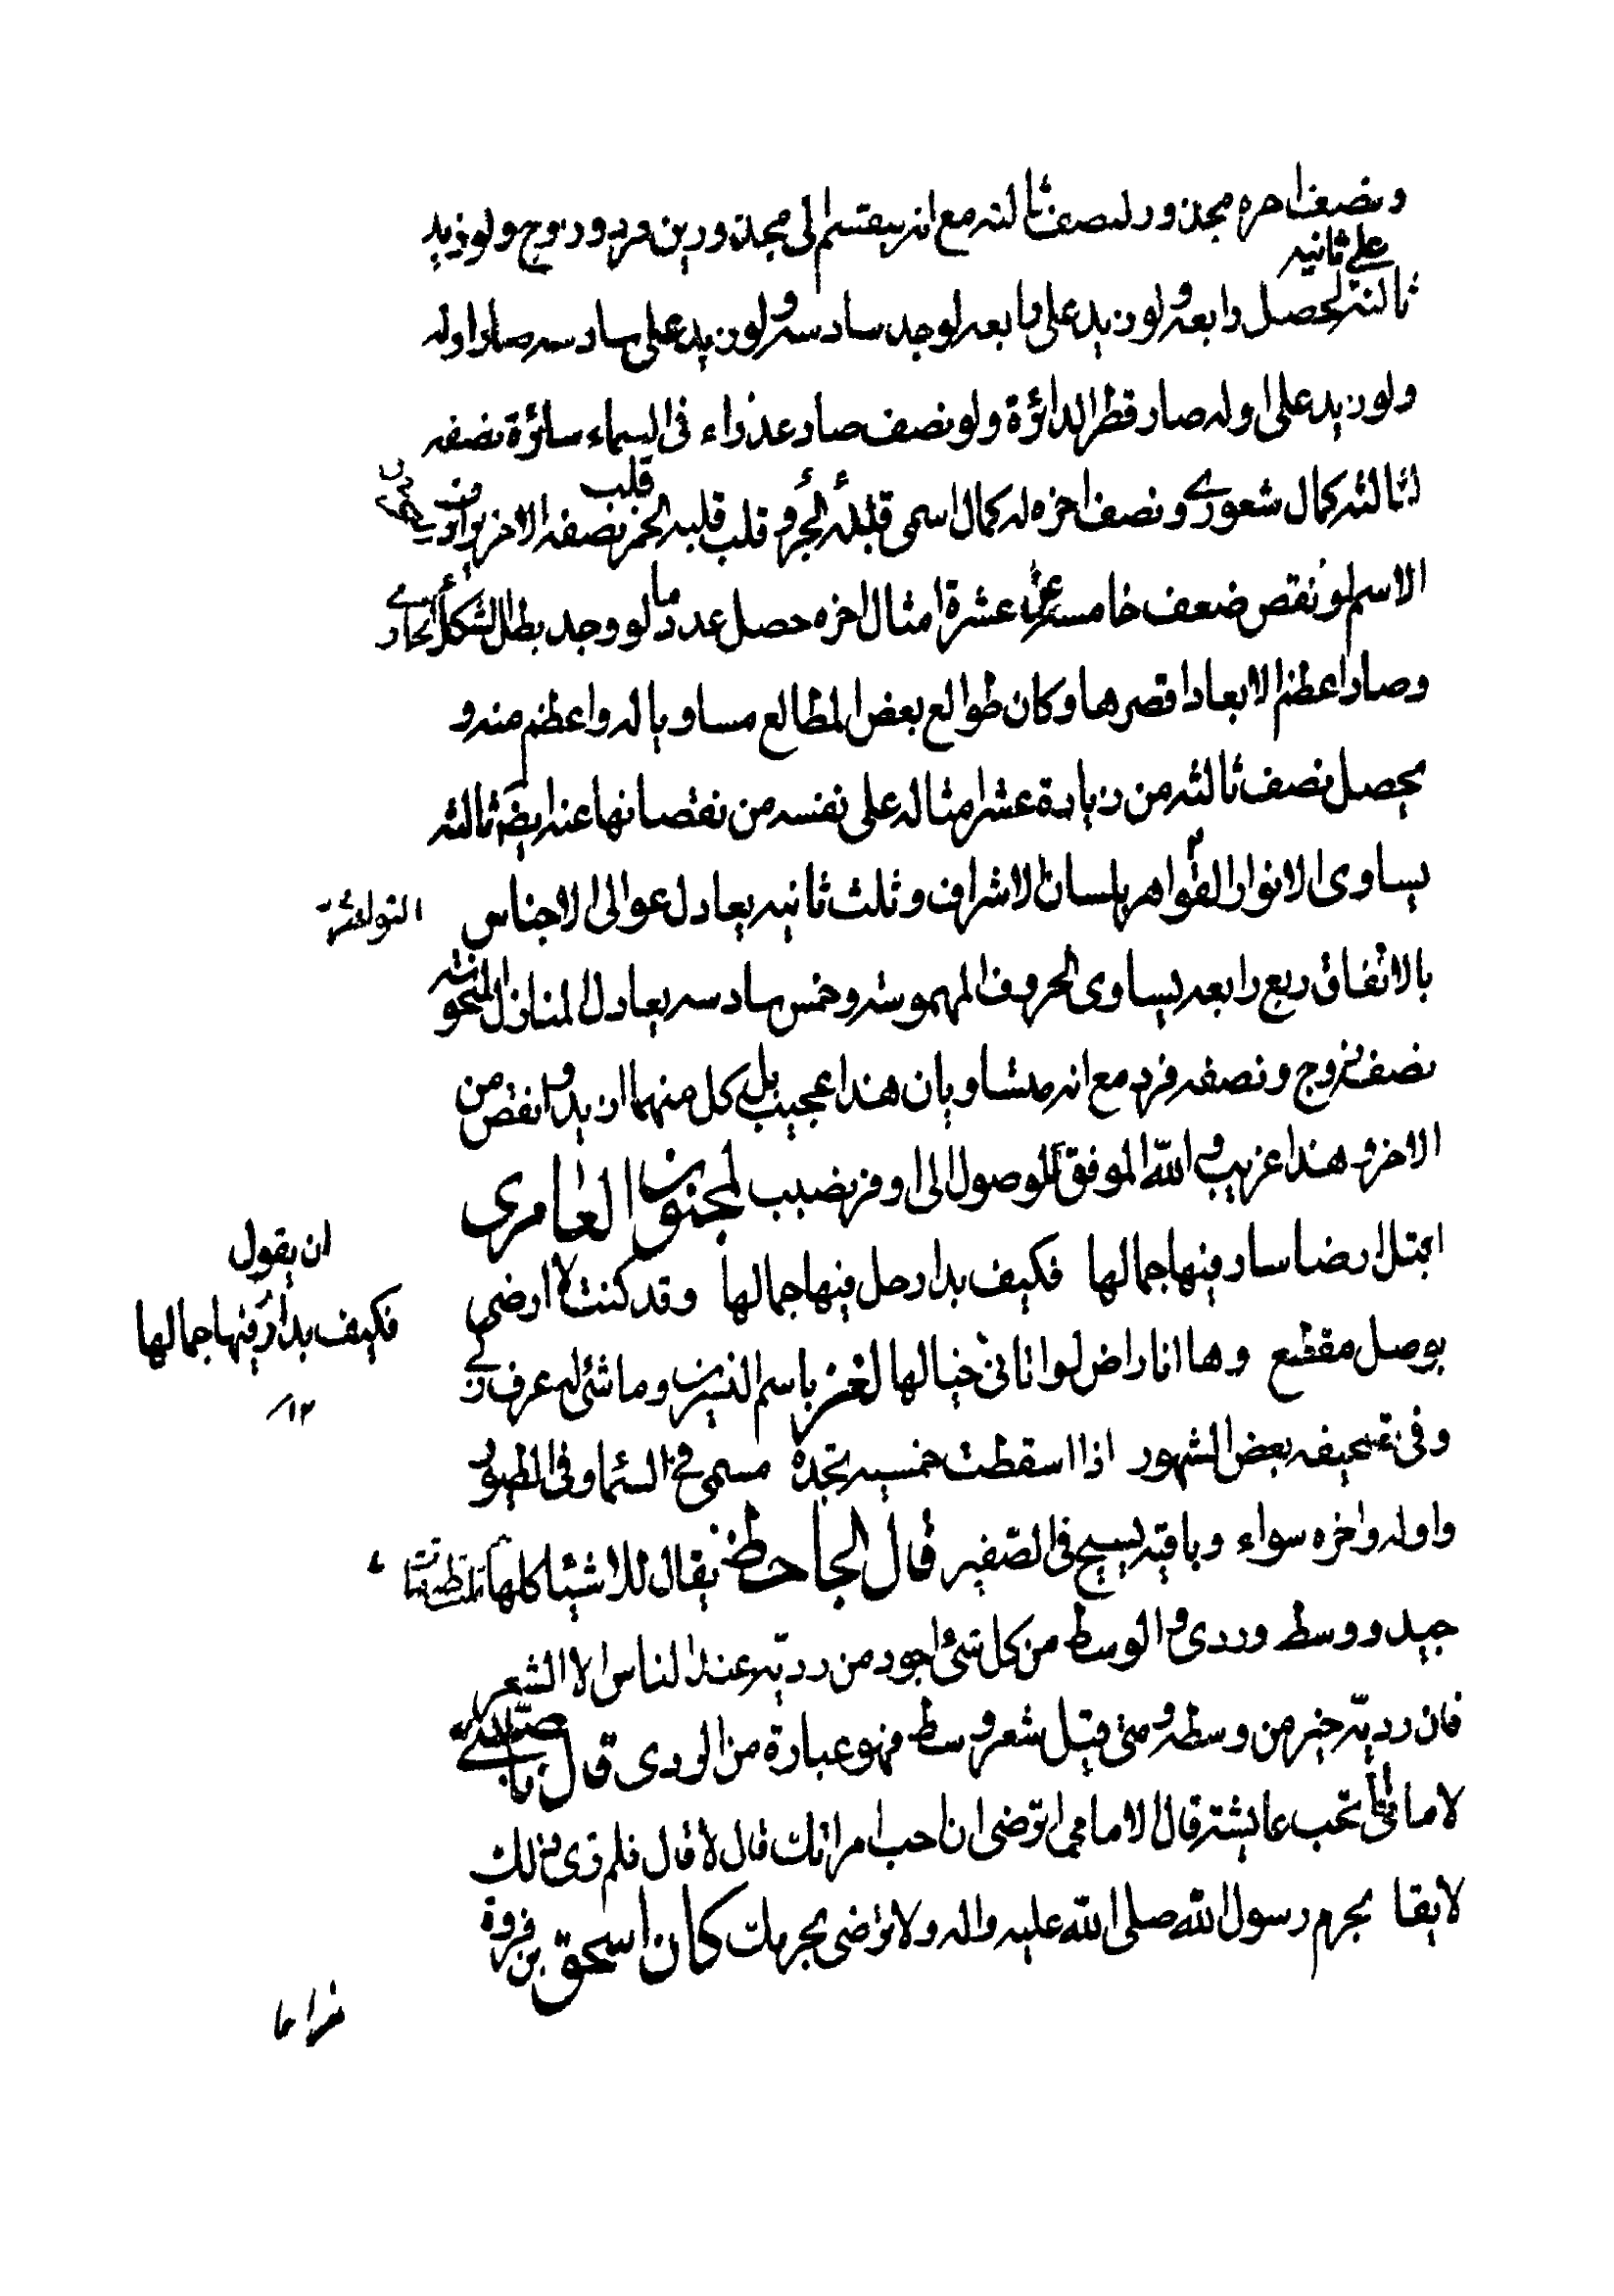 ونصف اخره مجذور لنصف ثالثه مع انه ينقسم الى مجذورين فرد وزوج ولو زيد
على ثانيه
ثالثه لحصل رابعه ولو زيد على رابعه لوجد سادسه ولو زيد على سادسه صار اوله
ولو زيد على اوله صار قطر الدائرة ولو نصف صار عذراء فى السماء سائرة نصفه
لثالثه كمال شعورى ونصف اخره له كمال اسمى قبله الجر وقلب قلبه الخمر نصفه الاخر
قلب
الاسم لو نقص ضعف خامسه عن عشرة امثال اخره حصل عدد ما لو وجد بطل الشكل الحمارى
وصار اعظم الابعاد اقصرها وكان طوالع بعض المطالع مساويا له واعظم منه و
يحصل نصف ثالثه من زيادة عشر امثاله على نفسه من نقصانها عنه ايضا ثالثه
يساوى الانوار القواهر بلسان الاشراف وثلث ثانيه يعادل عوالى الاجناس
بالاتفاق ربع رابعه يساوى الحروف المهموسة وخمس سادسه يعادل المنازل المنحوسة
نصفه زوج ونصفه فرد مع انه متساويان هذا عجيب بل كل منهما ازيد وانقص من
الاخر وهذا غريب والله الموفق للوصول الى اوفر نصيب لمجنون العامرى
اتبتل ارضا سار فيها جمالها فكيف بدار حل فيها جمالها وقد كنت لا ارضى
ان يقول
فكيف بدار فيها جمالها
١٢
بوصل مقطع وها انا راض لو اتانى خيالها لغز باسم النسرين وما شئ له عرف ذكى
وفى تصحيفه بعض الشهور اذا اسقطت خمسيه تجده مسمى فى السما وفى الطيور
واوله واخره سواء وباقيه يسبح فى الصفير قال الجاحظ يقال للاشيئا كلها
جيد ووسط وردى والوسط من كل شئ اجود من رديه عند الناس الا الشعر
فان رديه خير من وسطه ومتى قيل شعر وسط فهو عبارة من الردى قال
لامامى اتحب عايشة قال لا مامى اترضى ان احب امراتك قال لا قال فلم ترى ذلك
لايقا بحرم رسول الله صلى الله عليه واله ولا ترضى بحرمك كان اسحق بن فروة